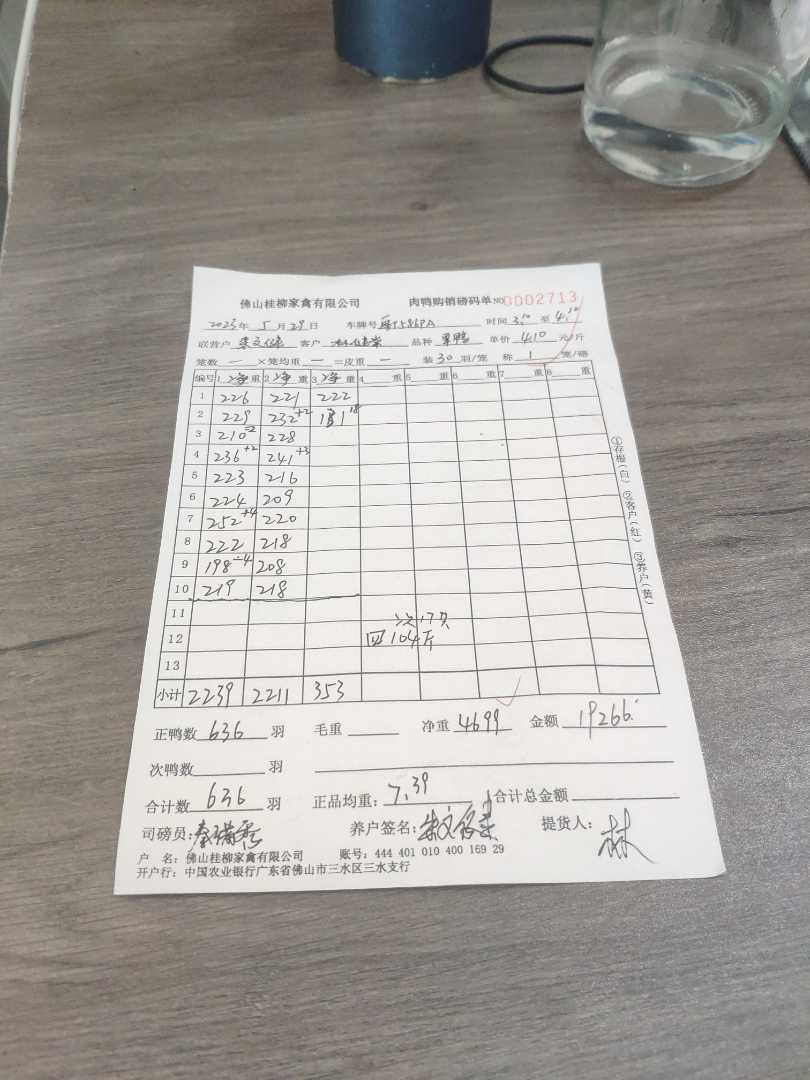 佛山桂柳家禽有限公司 肉鸭购销磅码单 NO 0002713
2023年 5月29日 车牌号 时间 3.10 至 4.10
联营户 客户 品种 单价 4.10 元/斤
笼数 一 ×笼均重 一 =皮重 一 装 30 羽/笼 称 1 笼/磅
编号 1 净重 2 净重 3 净重 4 重 5 重 6 重 7 重 8 重
1 226 221 222
2 229 232+2 131 18
3 210-2 228
4 236+2 241+3
5 223 216
6 224 209
7 252+4 220
8 222 218
9 198-4 208
10 219 218
11
次17只
12 104斤
13
小计 2239 2211 353
正鸭数 636 羽 毛重 净重 4699 金额 19266.
次鸭数 羽
合计数 636 羽 正品均重: 7.39 合计总金额
司磅员: 养户签名: 提货人: 林
户 名: 佛山桂柳家禽有限公司 账号: 444 401 010 400 169 29
开户行: 中国农业银行广东省佛山市三水区三水支行
①存根(白) ②客户(红) ③养户(黄)